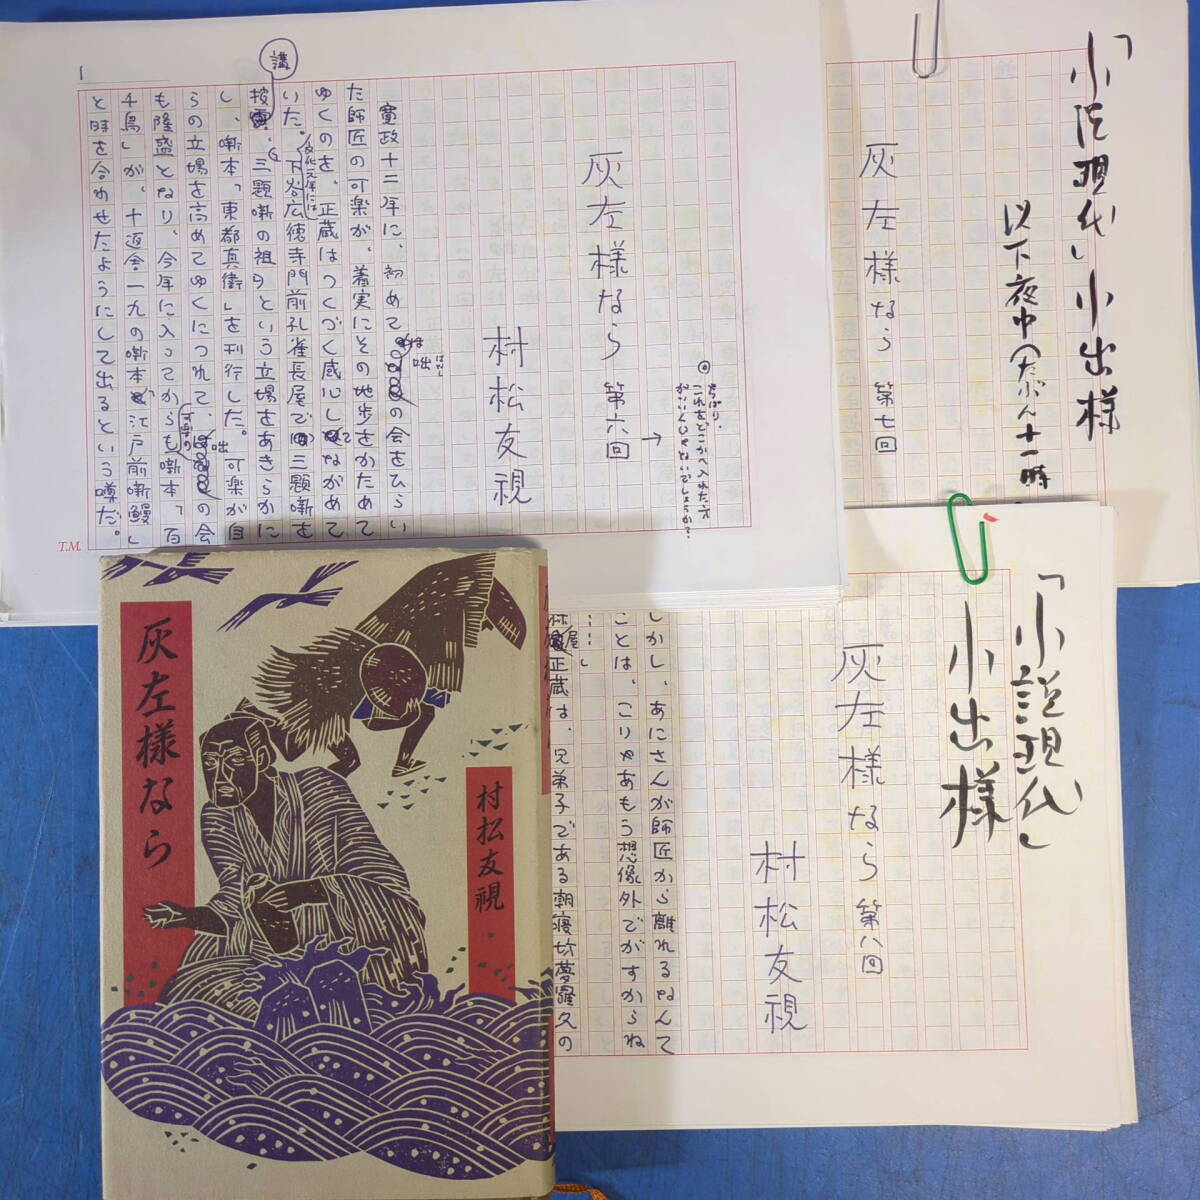 1
講
灰左様なら 第六回
村松友視
寛政十二年に、初めて
咄
はなし
の会をひらい
た師匠の可楽が、着実にその地歩をかためて
ゆくのを、正蔵はつくづく感心してながめて
いた。
文化元年には
下谷広徳寺門前孔雀長屋で三題噺を
披講し、三題噺の祖という立場をあきらかに
し、噺本「東都真衛」を刊行した。可楽が自
らの立場を高めてゆくにつれて、
可楽の
咄
の会
も隆盛となり、今年に入ってからも噺本「百
千鳥」が、十返舎一九の噺本「江戸前噺鰻」
と時を合わせたようにして出るという噂だ。
やはり、
これをどこかへ入れた方
がいいんじゃないでしょうか?
T.M.
「小説現代」小出様
以下夜中(たぶん十一時
灰左様なら 第七回
「小説現代」
小出様
灰左様なら 第八回
村松友視
しかし、あにさんが師匠から離れるなんて
ことは、こりゃあもう想像外でがすからね
……」
林屋正蔵は、兄弟子である朝寝坊夢羅久の
灰左様なら
村松友視